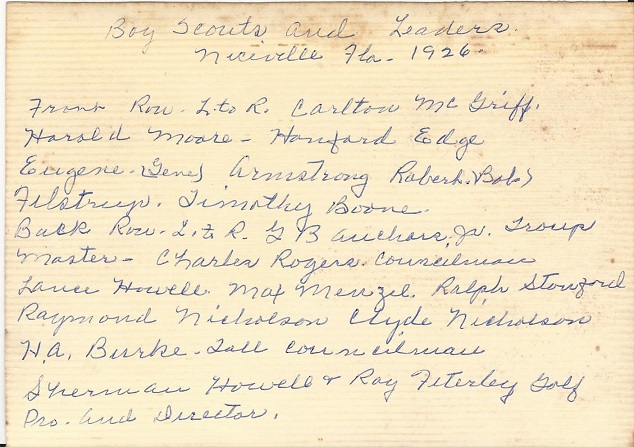 Boy Scouts and Leaders.
Niceville Fla- 1926-
Front Row. L. to R. Carlton McGriff.
Harold Moore - Hansford Edge
Eugene-(Gene) Armstrong Robert.(Bob)
Filstrup. Timothy Boone.
Back Row. L. to R. G B Anchors, Jr. Troup
Master- Charles Rogers. Councilman
Lance Howell. Max Menzel. Ralph
Raymond Nicholson Clyde Nicholson
HA. Burke-Tall councilman
Sherman Howell & Roy Feterley Golf
Pro. and Director.